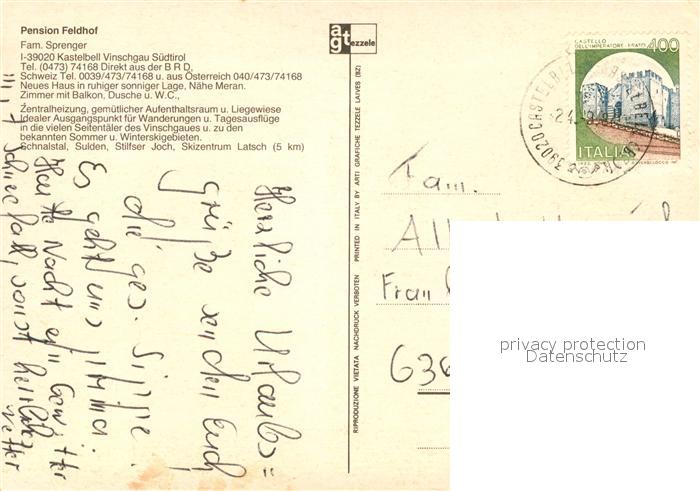 Pension Feldhof
Fam. Sprenger
I-39020 Kastelbell Vinschgau Südtirol
Tel. (0473) 74168 Direkt aus der B R D,
Schweiz Tel. 0039/473/74168 u. aus Österreich 040/473/74168
Neues Haus in ruhiger sonniger Lage, Nähe Meran.
Zimmer mit Balkon, Dusche u. W.C.,
Zentralheizung, gemütlicher Aufenthaltsraum u. Liegewiese
idealer Ausgangspunkt für Wanderungen u. Tagesausflüge
in die vielen Seitentäler des Vinschgaues u. zu den
bekannten Sommer u. Winterskigebieten.
Schnalstal, Sulden, Stilfser Joch, Skizentrum Latsch (5 km)
Herrliche Urlaubs=
grüße senden Euch
die ges. Sippe!
Es geht uns prima.
Heute Nacht ein Gewitter
Schneefall, sonst herrliches
wetter
agt tezzele
RIPRODUZIONE VIETATA NACHDRUCK VERBOTEN PRINTED IN ITALY BY ARTI GRAFICHE TEZZELE LAIVES (BZ)
CASTELLO
DELL'IMPERATORE-PRATO 400
ITALIA
39020 CASTELBELLO
Fam.
privacy protection
Datenschutz